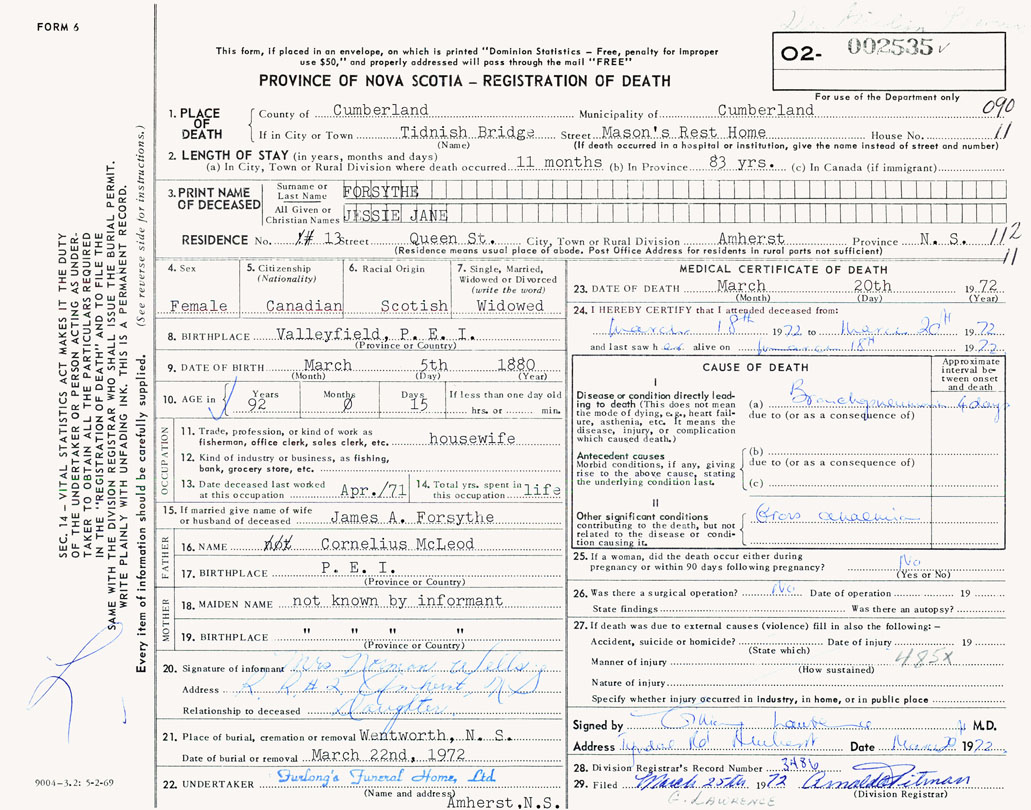 FORM 6
002535
O2-
This form, if placed in an envelope, on which is printed "Dominion Statistics – Free, penalty for improper
use $50," and properly addressed will pass through the mail "FREE"
PROVINCE OF NOVA SCOTIA – REGISTRATION OF DEATH
For use of the Department only
090
1. PLACE OF DEATH
County of Cumberland Municipality of Cumberland
If in City or Town Tidnish Bridge Street Mason's Rest Home House No. 11
(Name) (If death occurred in a hospital or institution, give the name instead of street and number)
2. LENGTH OF STAY (in years, months and days)
(a) In City, Town or Rural Division where death occurred 11 months (b) In Province 83 yrs. (c) In Canada (if immigrant)
3. PRINT NAME OF DECEASED
Surname or Last Name FORSYTHE
All Given or Christian Names JESSIE JANE
RESIDENCE No. 13 Street Queen St. City, Town or Rural Division Amherst Province N. S. 112
(Residence means usual place of abode. Post Office Address for residents in rural parts not sufficient) 11
4. Sex
Female
5. Citizenship
(Nationality)
Canadian
6. Racial Origin
Scotish
7. Single, Married,
Widowed or Divorced
(write the word)
Widowed
8. BIRTHPLACE Valleyfield, P. E. I.
(Province or Country)
9. DATE OF BIRTH March 5th 1880
(Month) (Day) (Year)
10. AGE in Years 92 Months 0 Days 15 If less than one day old
hrs. or min.
OCCUPATION
11. Trade, profession, or kind of work as
fisherman, office clerk, sales clerk, etc. housewife
12. Kind of industry or business, as fishing,
bank, grocery store, etc.
13. Date deceased last worked
at this occupation Apr./71
14. Total yrs. spent in
this occupation life
15. If married give name of wife
or husband of deceased James A. Forsythe
FATHER
16. NAME Cornelius McLeod
17. BIRTHPLACE P. E. I.
(Province or Country)
MOTHER
18. MAIDEN NAME not known by informant
19. BIRTHPLACE " " " "
(Province or Country)
20. Signature of informant Mrs Norman Wells
Address R. R # 2 Amherst, N S
Relationship to deceased Daughter
21. Place of burial, cremation or removal Wentworth, N. S.
Date of burial or removal March 22nd, 1972
22. UNDERTAKER Furlong's Funeral Home, Ltd
(Name and address)
Amherst, N.S.
MEDICAL CERTIFICATE OF DEATH
23. DATE OF DEATH March 20th 1972
(Month) (Day) (Year)
24. I HEREBY CERTIFY that I attended deceased from:
March 18th 1972 to March 20th 1972
and last saw her alive on 18th 1972
CAUSE OF DEATH
Approximate
interval be-
tween onset
and death
I
Disease or condition directly lead-
ing to death (This does not mean
the mode of dying, e.g., heart fail-
ure, asthenia, etc. It means the
disease, injury, or complication
which caused death.)
(a) Bronchopneumonia 4 days
due to (or as a consequence of)
Antecedent causes
Morbid conditions, if any, giving
rise to the above cause, stating
the underlying condition last.
(b)
due to (or as a consequence of)
(c)
II
Other significant conditions
contributing to the death, but not
related to the disease or condi-
tion causing it.
25. If a woman, did the death occur either during
pregnancy or within 90 days following pregnancy? No
(Yes or No)
26. Was there a surgical operation? No Date of operation 19
State findings Was there an autopsy?
27. If death was due to external causes (violence) fill in also the following:–
Accident, suicide or homicide? Date of injury 19
(State which)
Manner of injury 485X
(How sustained)
Nature of injury
Specify whether injury occurred in industry, in home, or in public place
Signed by M.D.
Address Rd Amherst Date 1972
28. Division Registrar's Record Number 3486
29. Filed March 25th 1972 Arnold Pitman
(Division Registrar)
G. LAWRENCE
SEC. 14 – VITAL STATISTICS ACT MAKES IT THE DUTY
OF THE UNDERTAKER OR PERSON ACTING AS UNDER-
TAKER TO OBTAIN ALL THE PARTICULARS REQUIRED
IN THE "REGISTRATION OF DEATH" AND TO FILE THE
SAME WITH THE DIVISION REGISTRAR WHO SHALL ISSUE THE BURIAL PERMIT.
WRITE PLAINLY WITH UNFADING INK. THIS IS A PERMANENT RECORD.
Every item of information should be carefully supplied. (See reverse side for instructions.)
9004–3.2: 5-2-69